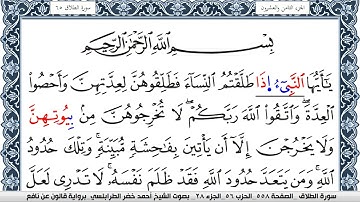 الجزء الثامن والعشرون
سورة الطلاق ٦٥
بِسْمِ اللَّهِ الرَّحْمَٰنِ الرَّحِيمِ
يَٰٓأَيُّهَا النَّبِيٓءُ اِ۬ذَا طَلَّقْتُمُ النِّسَآءَ فَطَلِّقُوهُنَّ لِعِدَّتِهِنَّ وَأَحْصُوا
الْعِدَّةَ وَاتَّقُوا اللَّهَ رَبَّكُمْ لَا تُخْرِجُوهُنَّ مِنۢ بِيُوتِهِنَّ
وَلَا يَخْرُجْنَ إِلَّآ أَنْ يَأْتِينَ بِفَٰحِشَةٍ مُبَيِّنَةٍ وَتِلْكَ حُدُودُ
اللَّهِ وَمَنْ يَتَعَدَّ حُدُودَ اللَّهِ فَقَدْ ظَلَمَ نَفْسَهُ لَا تَدْرِي لَعَلَّ
سورة الطلاق الصفحة ٥٥٨ الحزب ٥٦ الجزء ٢٨ بصوت الشيخ أحمد خضر الطرابلسي برواية قالون عن نافع